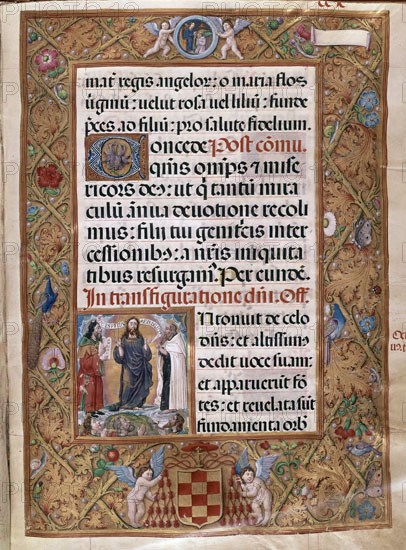 mat̄ regis angelor: o maria flos
ũginũ: uelut rosa uel liliũ: funde
p̄ces ad filiũ: pro salute fidelium.
Concede Post cõmu.
q̃ms onip̃s ⁊ mise
ricors deꝰ: ut q̃ tantũ mira
culũ ãnua deuotione recoli
mus: filij tui genit̃cis inter
cessionibꝰ: a nr̃is iniquita
tibus resurgamꝰ. Per eundẽ.
In transfiguratione dñi. Off.
Ntonuit de celo
dñs: et altissimꝰ
dedit uocẽ suam:
et apparuerũt fõ
tes: et reuelata sũt
fundamenta orbꝰ